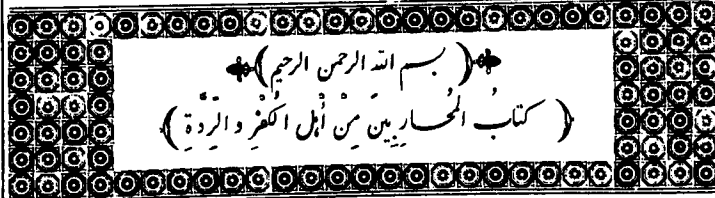 ﴿ بسم الله الرحمن الرحيم ﴾
﴿ كتابُ المُحاربينَ مِنْ أَهْلِ الكُفْرِ والرِّدَّةِ ﴾